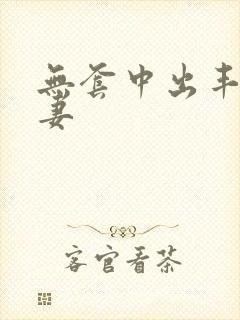 無套中出丰
妻
客官看茶